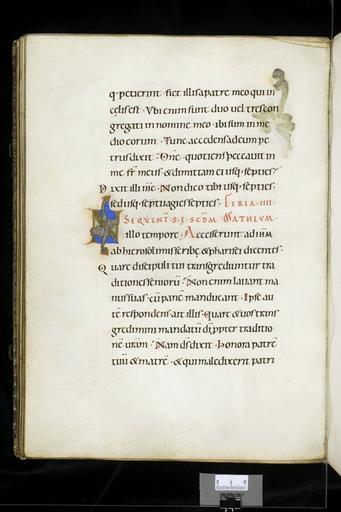 q petierint · fiet illis a patre meo qui in
cęlis est · Ubi enim sunt duo vel tres con
gregati in nomine meo · ibi sum in me
dio eorum · Tunc accedens ad eum pe
trus dixit · Dñe · quotiens peccavit in
me fr̄ meus · & dimittam ei usq; septies ·
Dixit illi ihc̄ · Non dico tibi usq; septies ·
sed usq; septuagies septies · FERIA · IIII ·
SEQUENT̄ · S · E · SCD̄M MATHEUM ·
IN illo tempore · Accesserunt ad ihm̄
ab hierosolimis scribę & pharisęi dicentes ·
Quare discipuli tui transgrediuntur tra
ditiones seniorū · Non enim lavant ma
nus suas · cū panē manducant · Ipse au
tē respondens ait illis · Quare & vos trans
gredimini mandatū dī ppter traditio
nē vr̄am · Nam ds̄ dixit · Honora patrē
tuū & matrē · & qui maledixerit patri